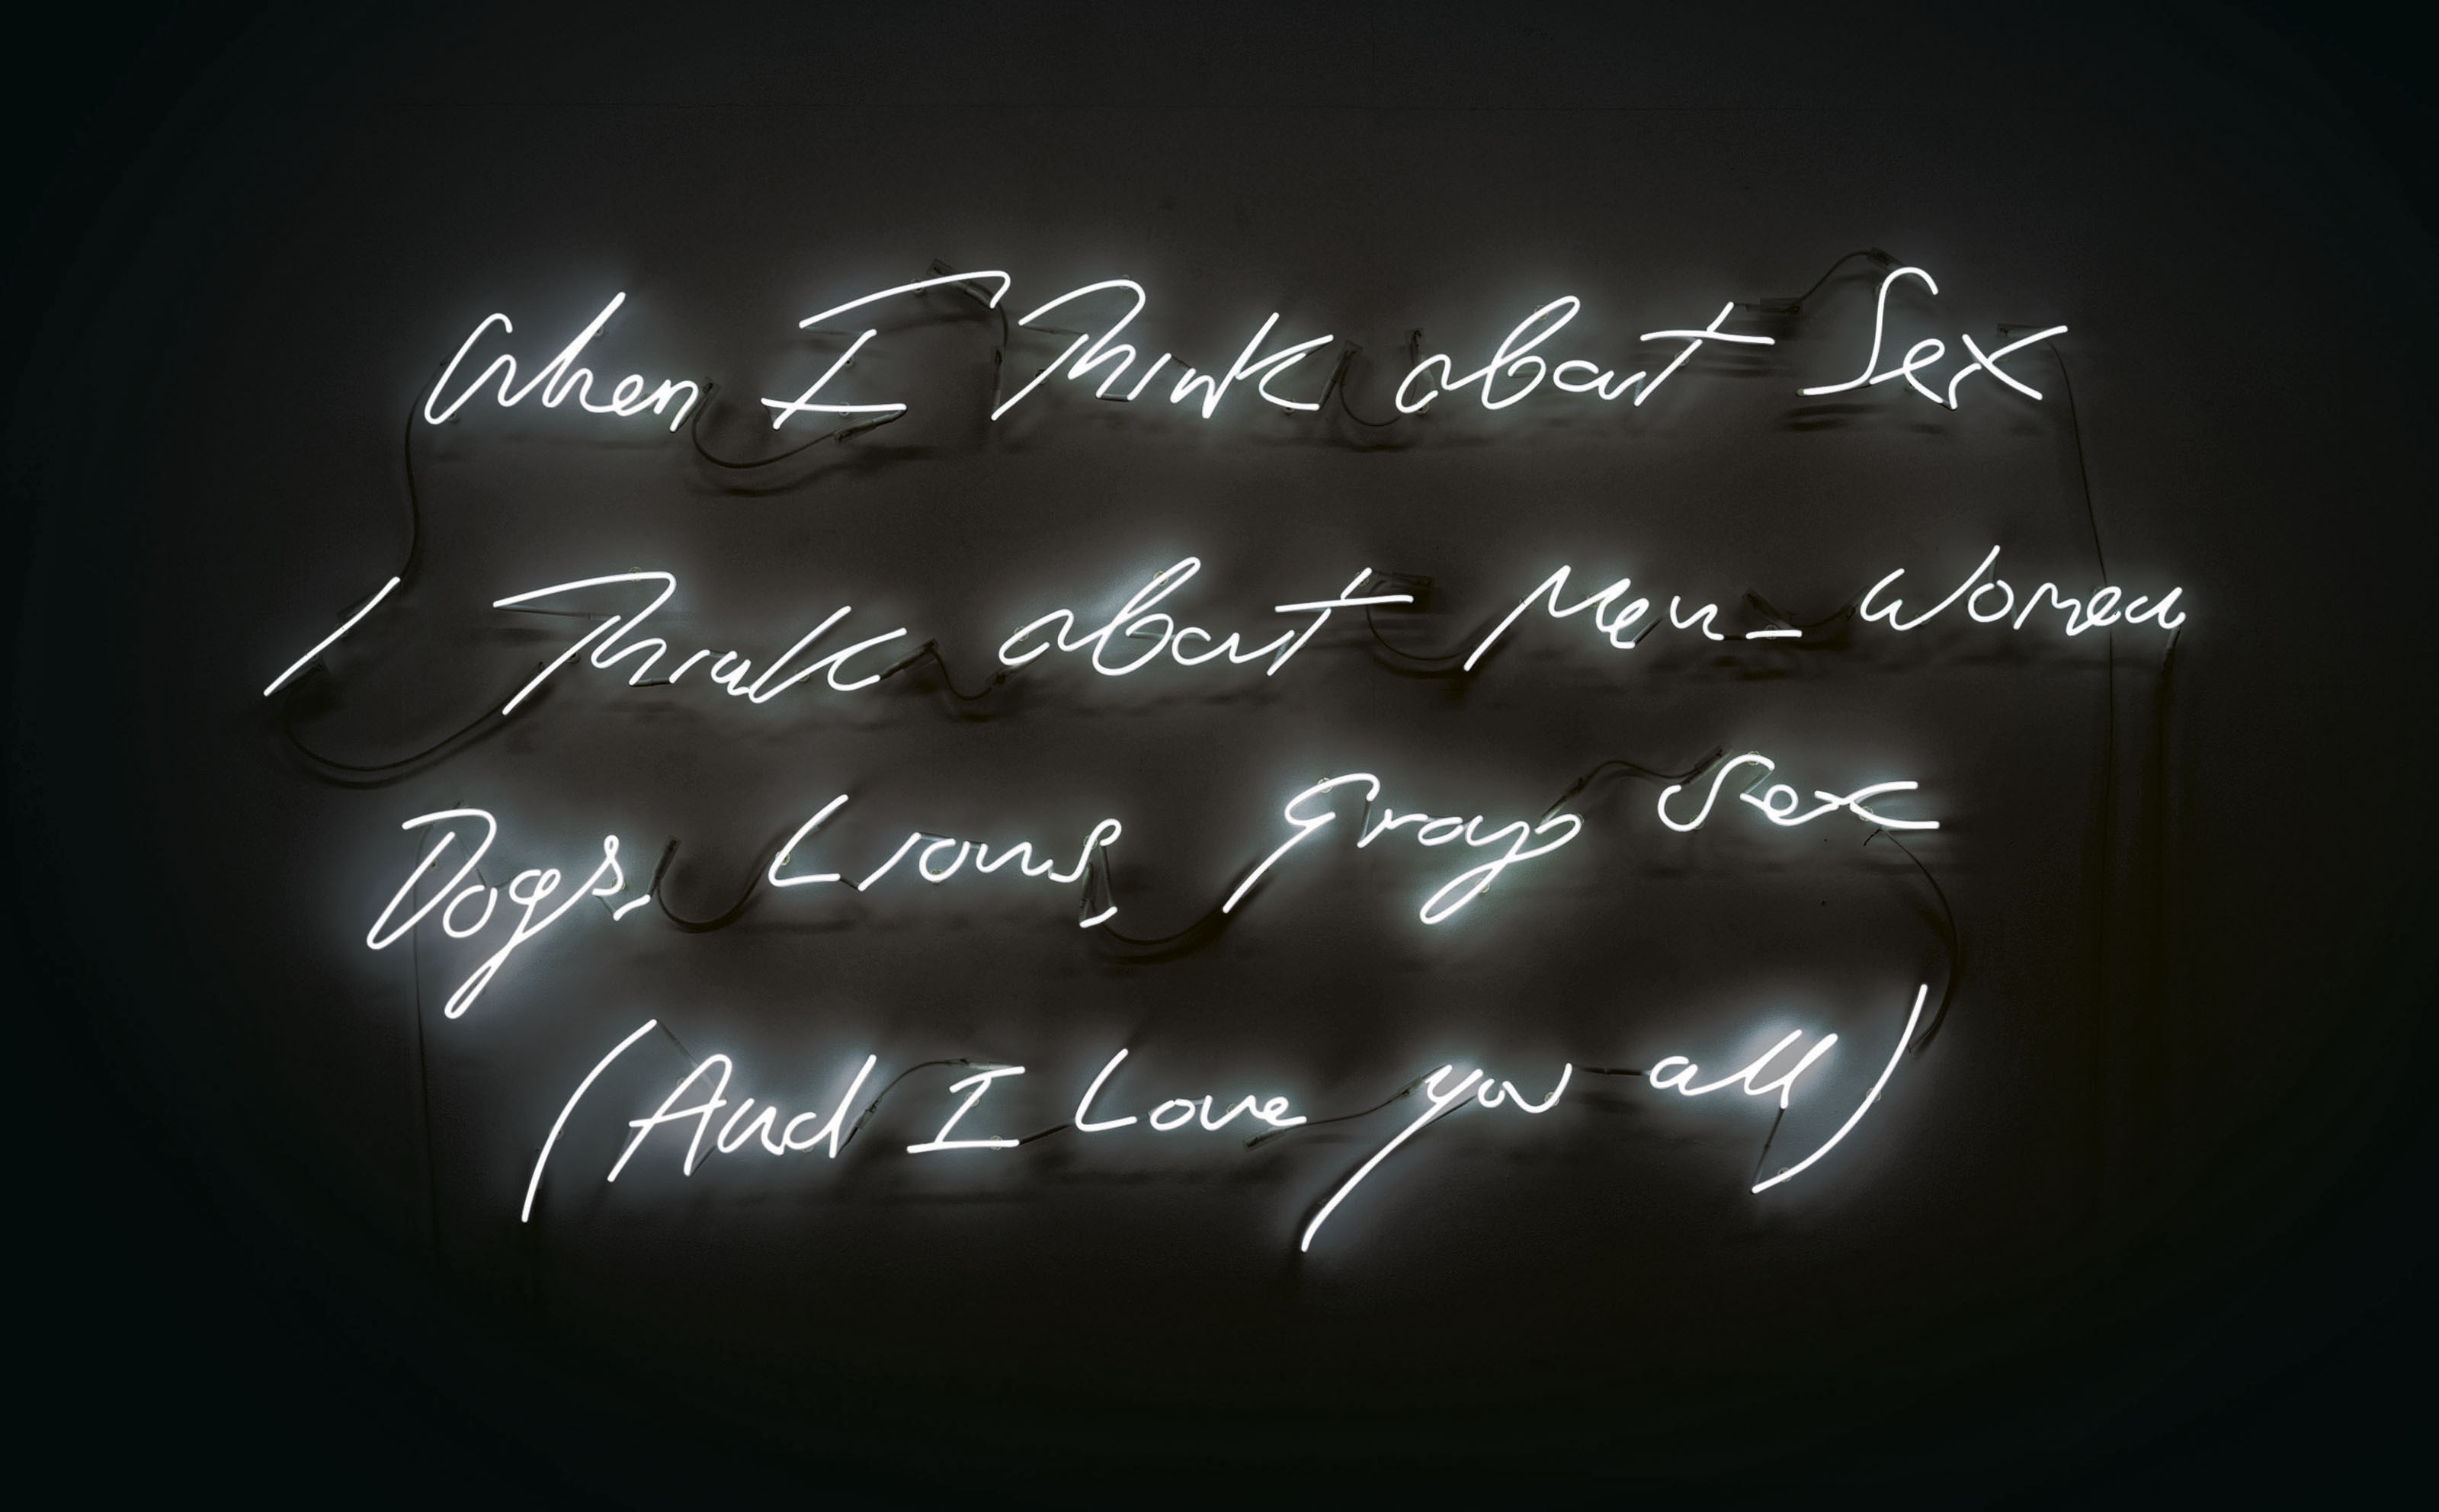 When I Think about Sex
I Think about Men_Women,
Dogs, Lions, Group Sex
(And I Love you all)